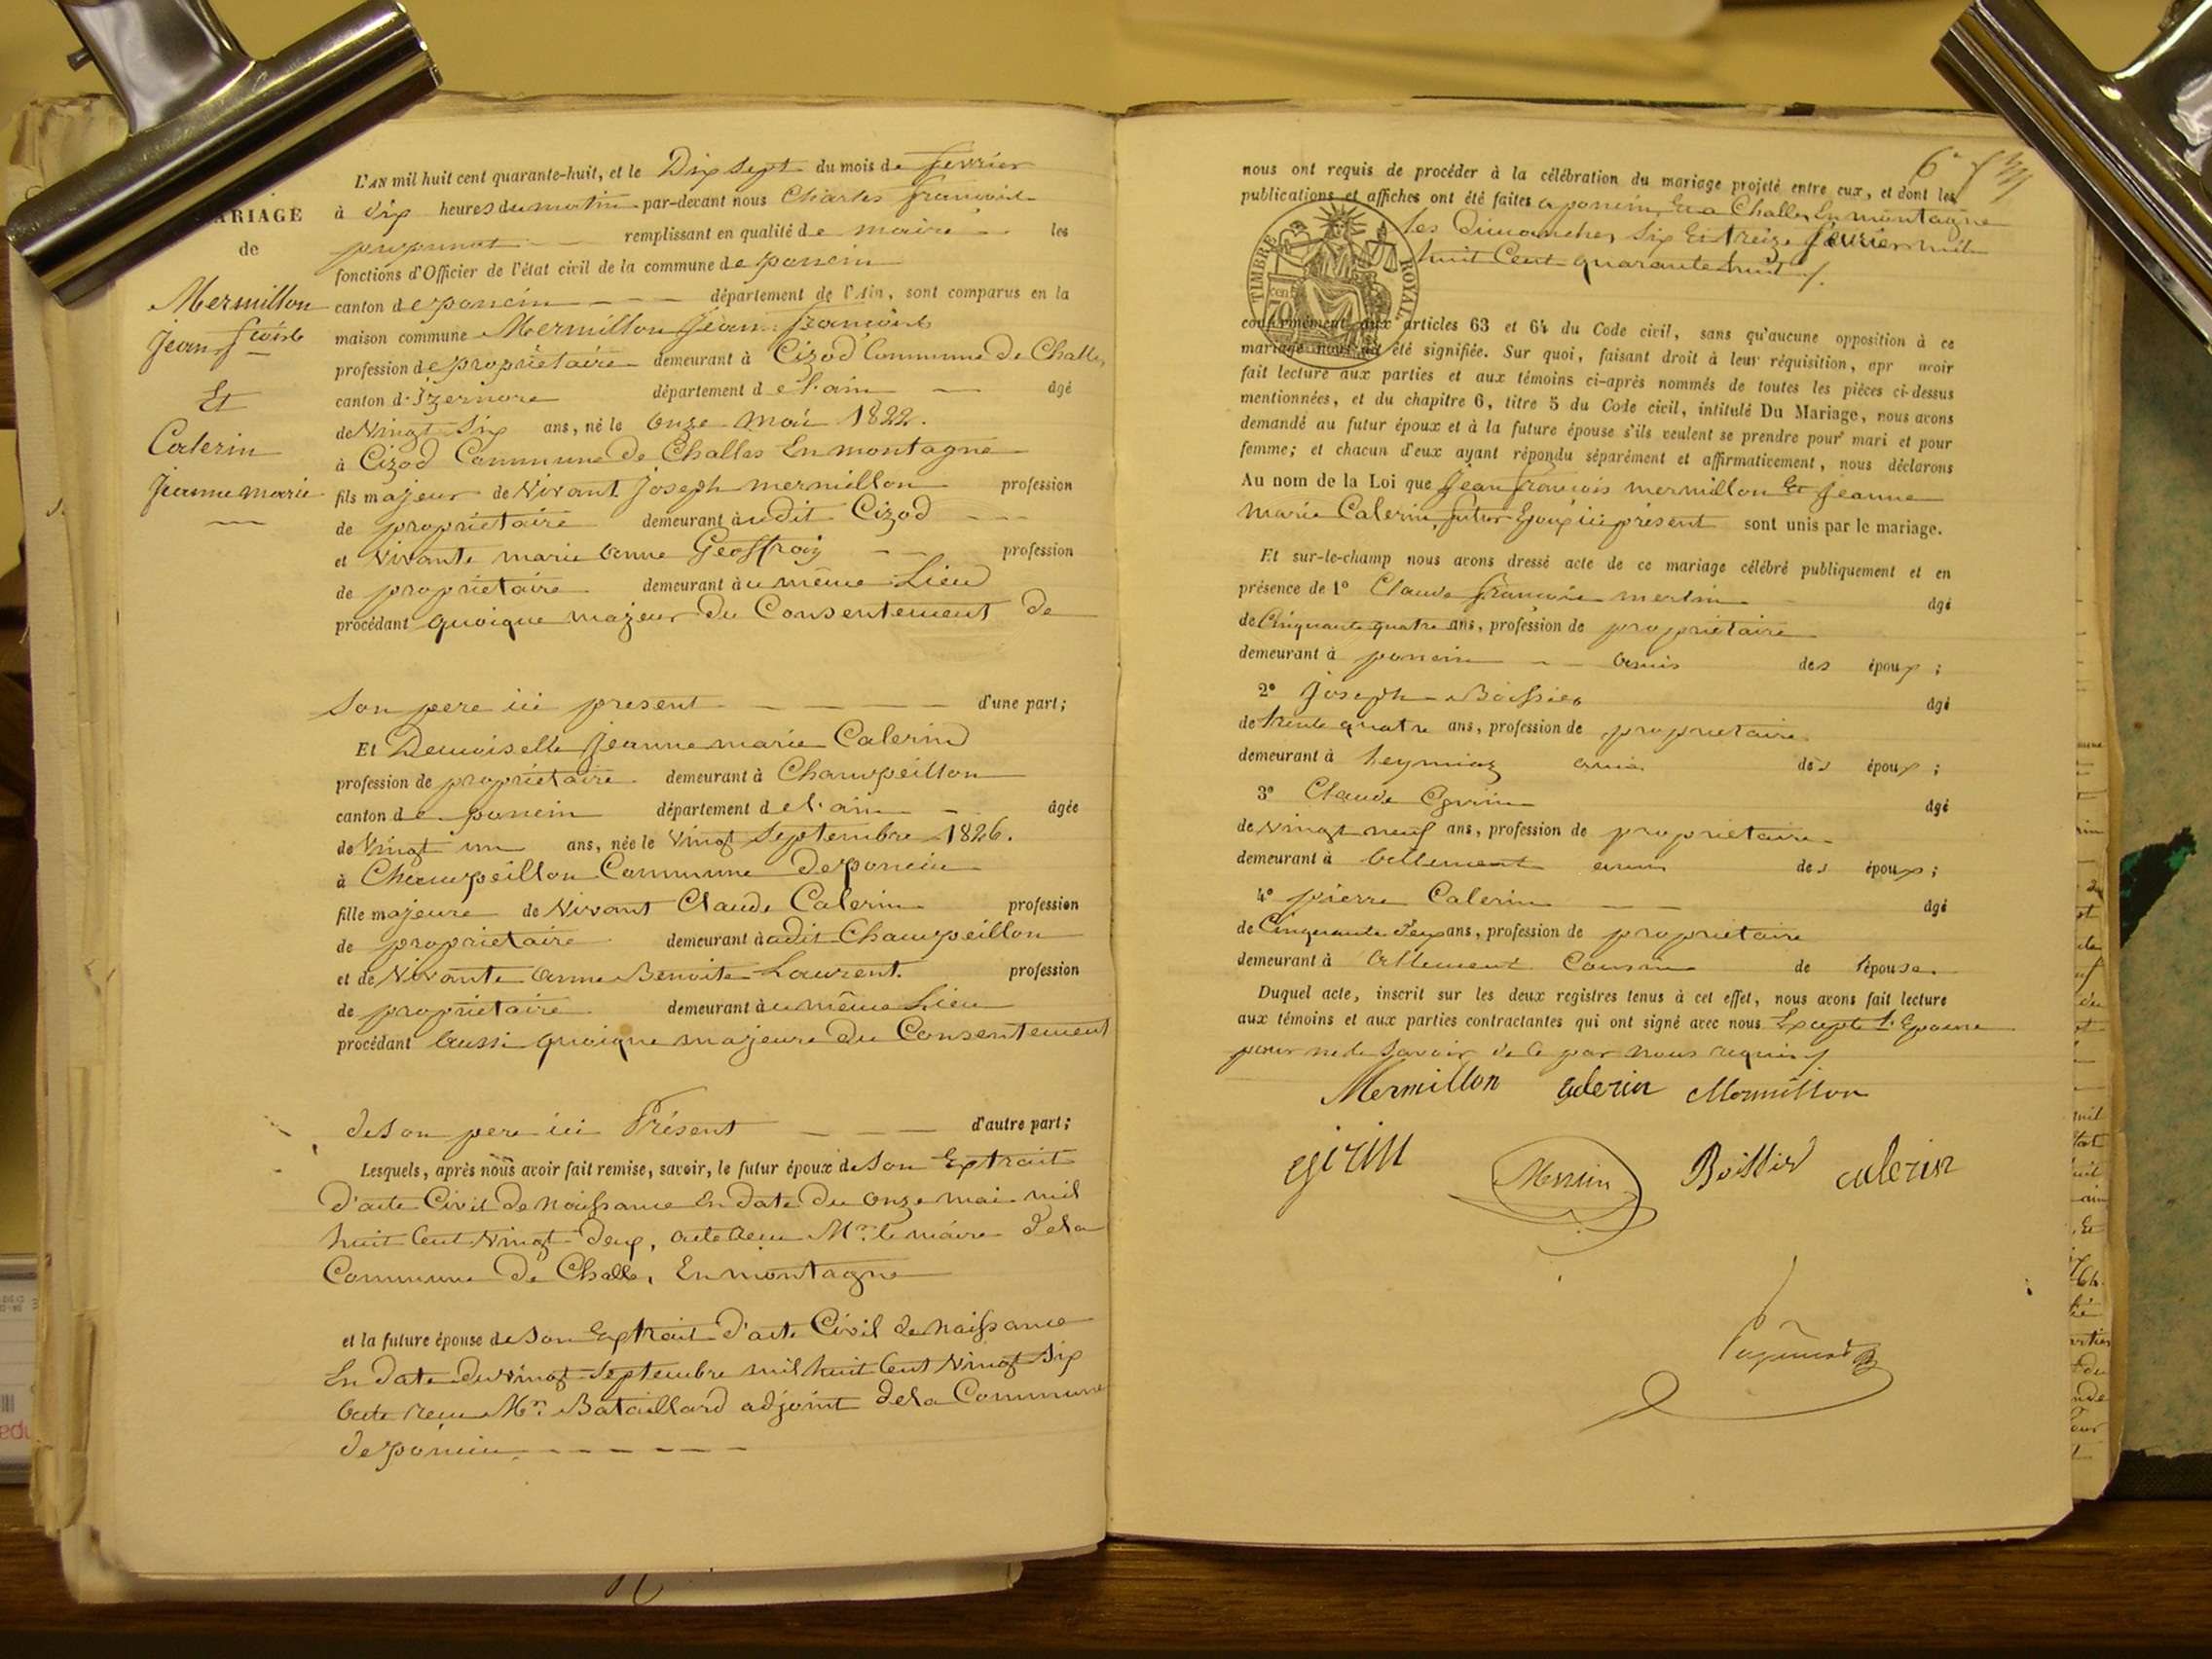 MARIAGE
de
Mermillon
Jean fcois
Et
Calerin
Jeanne marie
L'AN mil huit cent quarante-huit, et le Dix Sept du mois de fevrier
à dix heures du matin par-devant nous Charles francois
remplissant en qualité de maire les
fonctions d'Officier de l'état civil de la commune de poncin
canton de poncin département de l'Ain, sont comparus en la
maison commune Mermillon Jean francois
profession de propriétaire demeurant à Cizod Commune de Challes
canton d'izernore département de l'ain âgé
de Vingt Six ans, né le onze mai 1822.
à Cizod Commune de Challes En montagne
fils majeur de Vivant Joseph mermillon profession
de propriétaire demeurant audit Cizod
et Vivante marie anne Geoffray profession
de propriétaire demeurant au même Lieu
procédant quoique majeur du Consentement de
Son pere ici present d'une part;
Et Demoiselle Jeanne marie Calerin
profession de propriétaire demeurant à Champeillon
canton de poncin département de l'ain âgée
de Vingt un ans, née le Vingt Septembre 1826.
à Champeillon Commune de poncin
fille majeure de Vivant Claude Calerin profession
de propriétaire demeurant audit Champeillon
et de Vivante anne Benoite Laurent profession
de propriétaire demeurant au même Lieu
procédant aussi quoique majeure du Consentement
de son pere ici Présent d'autre part;
Lesquels, après nous avoir fait remise, savoir, le futur époux de Son Extrait
d'acte Civil de Naissance en date du onze mai mil
huit Cent Vingt Deux, Mr. le maire de la
Commune de Challes En montagne
et la future épouse de son Extrait d'acte Civil de Naissance
En date du Vingt Septembre mil huit Cent Vingt Six
acte recu Mr. Bataillard adjoint de la Commune
de poncin
6e
nous ont requis de procéder à la célébration du mariage projeté entre eux, et dont les
publications et affiches ont été faites a poncin, Et a Challes En montagne
les Dimanches Six Et treize fevrier mil
huit Cent quarante huit
TIMBRE ROYAL
70 cent
conformément aux articles 63 et 64 du Code civil, sans qu'aucune opposition à ce
mariage nous ait été signifiée. Sur quoi, faisant droit à leur réquisition, apr avoir
fait lecture aux parties et aux témoins ci-après nommés de toutes les pièces ci-dessus
mentionnées, et du chapitre 6, titre 5 du Code civil, intitulé Du Mariage, nous avons
demandé au futur époux et à la future épouse s'ils veulent se prendre pour mari et pour
femme; et chacun d'eux ayant répondu séparément et affirmativement, nous déclarons
Au nom de la Loi que Jean francois mermillon Et Jeanne
marie Calerin, futur Epoux ici présent sont unis par le mariage.
Et sur-le-champ nous avons dressé acte de ce mariage célébré publiquement et en
présence de 1º Claude francois merlin âgé
de Cinquante quatre ans, profession de propriétaire
demeurant à poncin amis des époux;
2º Joseph Boissier âgé
de trente quatre ans, profession de propriétaire
demeurant à leymiaz amis des époux;
3º Claude âgé
de vingt neuf ans, profession de propriétaire
demeurant à amis des époux;
4º pierre Calerin âgé
de Cinquante deux ans, profession de propriétaire
demeurant à Cousin de l'épouse.
Duquel acte, inscrit sur les deux registres tenus à cet effet, nous avons fait lecture
aux témoins et aux parties contractantes qui ont signé avec nous Excepté l'Epouse
pour ne le Savoir de ce par nous requis
Mermillon Calerin Mermillon
Merlin Boissier Calerin